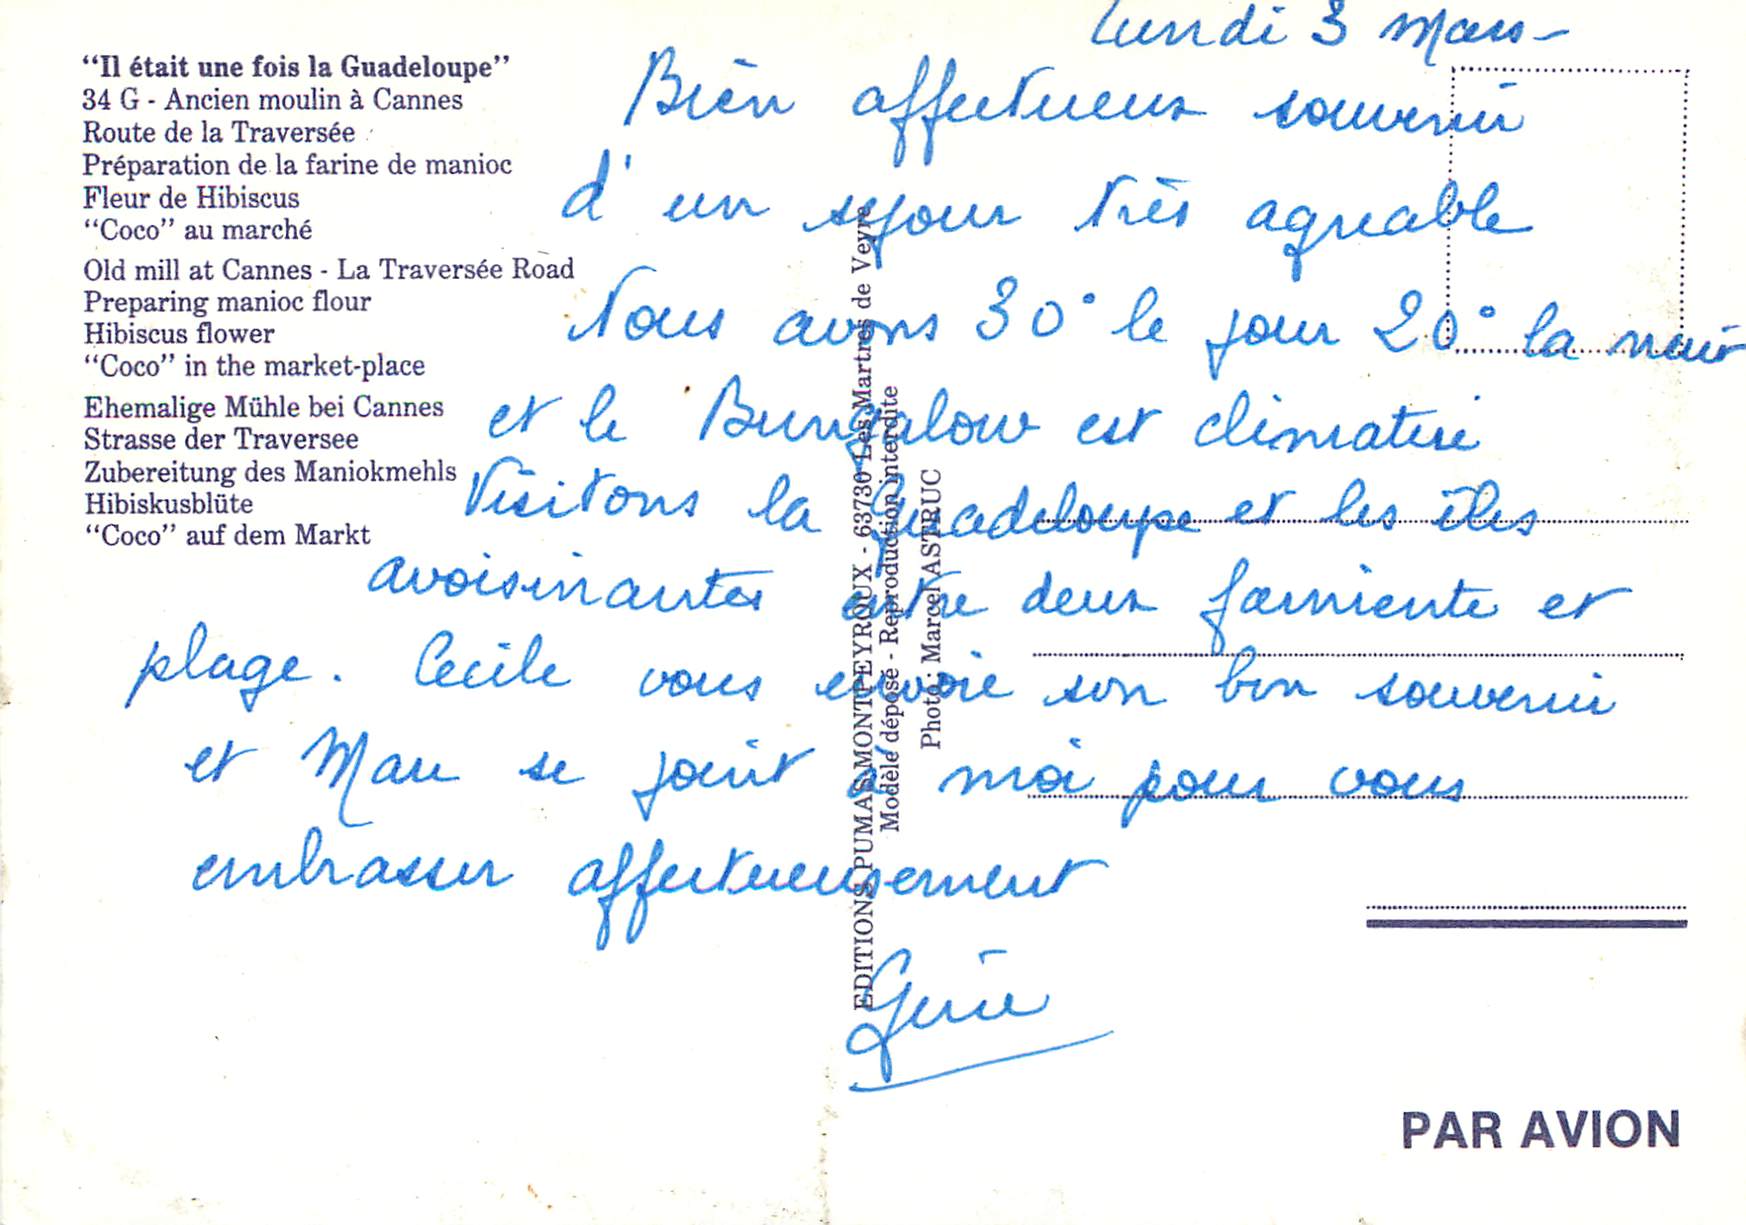 lundi 3 Mars -
"Il était une fois la Guadeloupe"
34 G - Ancien moulin à Cannes
Route de la Traversée
Préparation de la farine de manioc
Fleur de Hibiscus
"Coco" au marché
Old mill at Cannes - La Traversée Road
Preparing manioc flour
Hibiscus flower
"Coco" in the market-place
Ehemalige Mühle bei Cannes
Strasse der Traversee
Zubereitung des Maniokmehls
Hibiskusblüte
"Coco" auf dem Markt
Bien affectueux souvenir
d'un sejour très agreable
Nous avons 30° le jour 20° la nuit
et le Bungalow est climatisé
Visitons la Guadeloupe et les îles
avoisinantes entre deux farniente et
plage. Cecile vous envoie son bon souvenir
et Max se joint à moi pour vous
embrasser affectueusement
EDITIONS PUMA - MONTPEYROUX - 63730 Les Martres de Veyre
Modèle déposé - Reproduction interdite
Photo : Marcel ASTRUC
PAR AVION